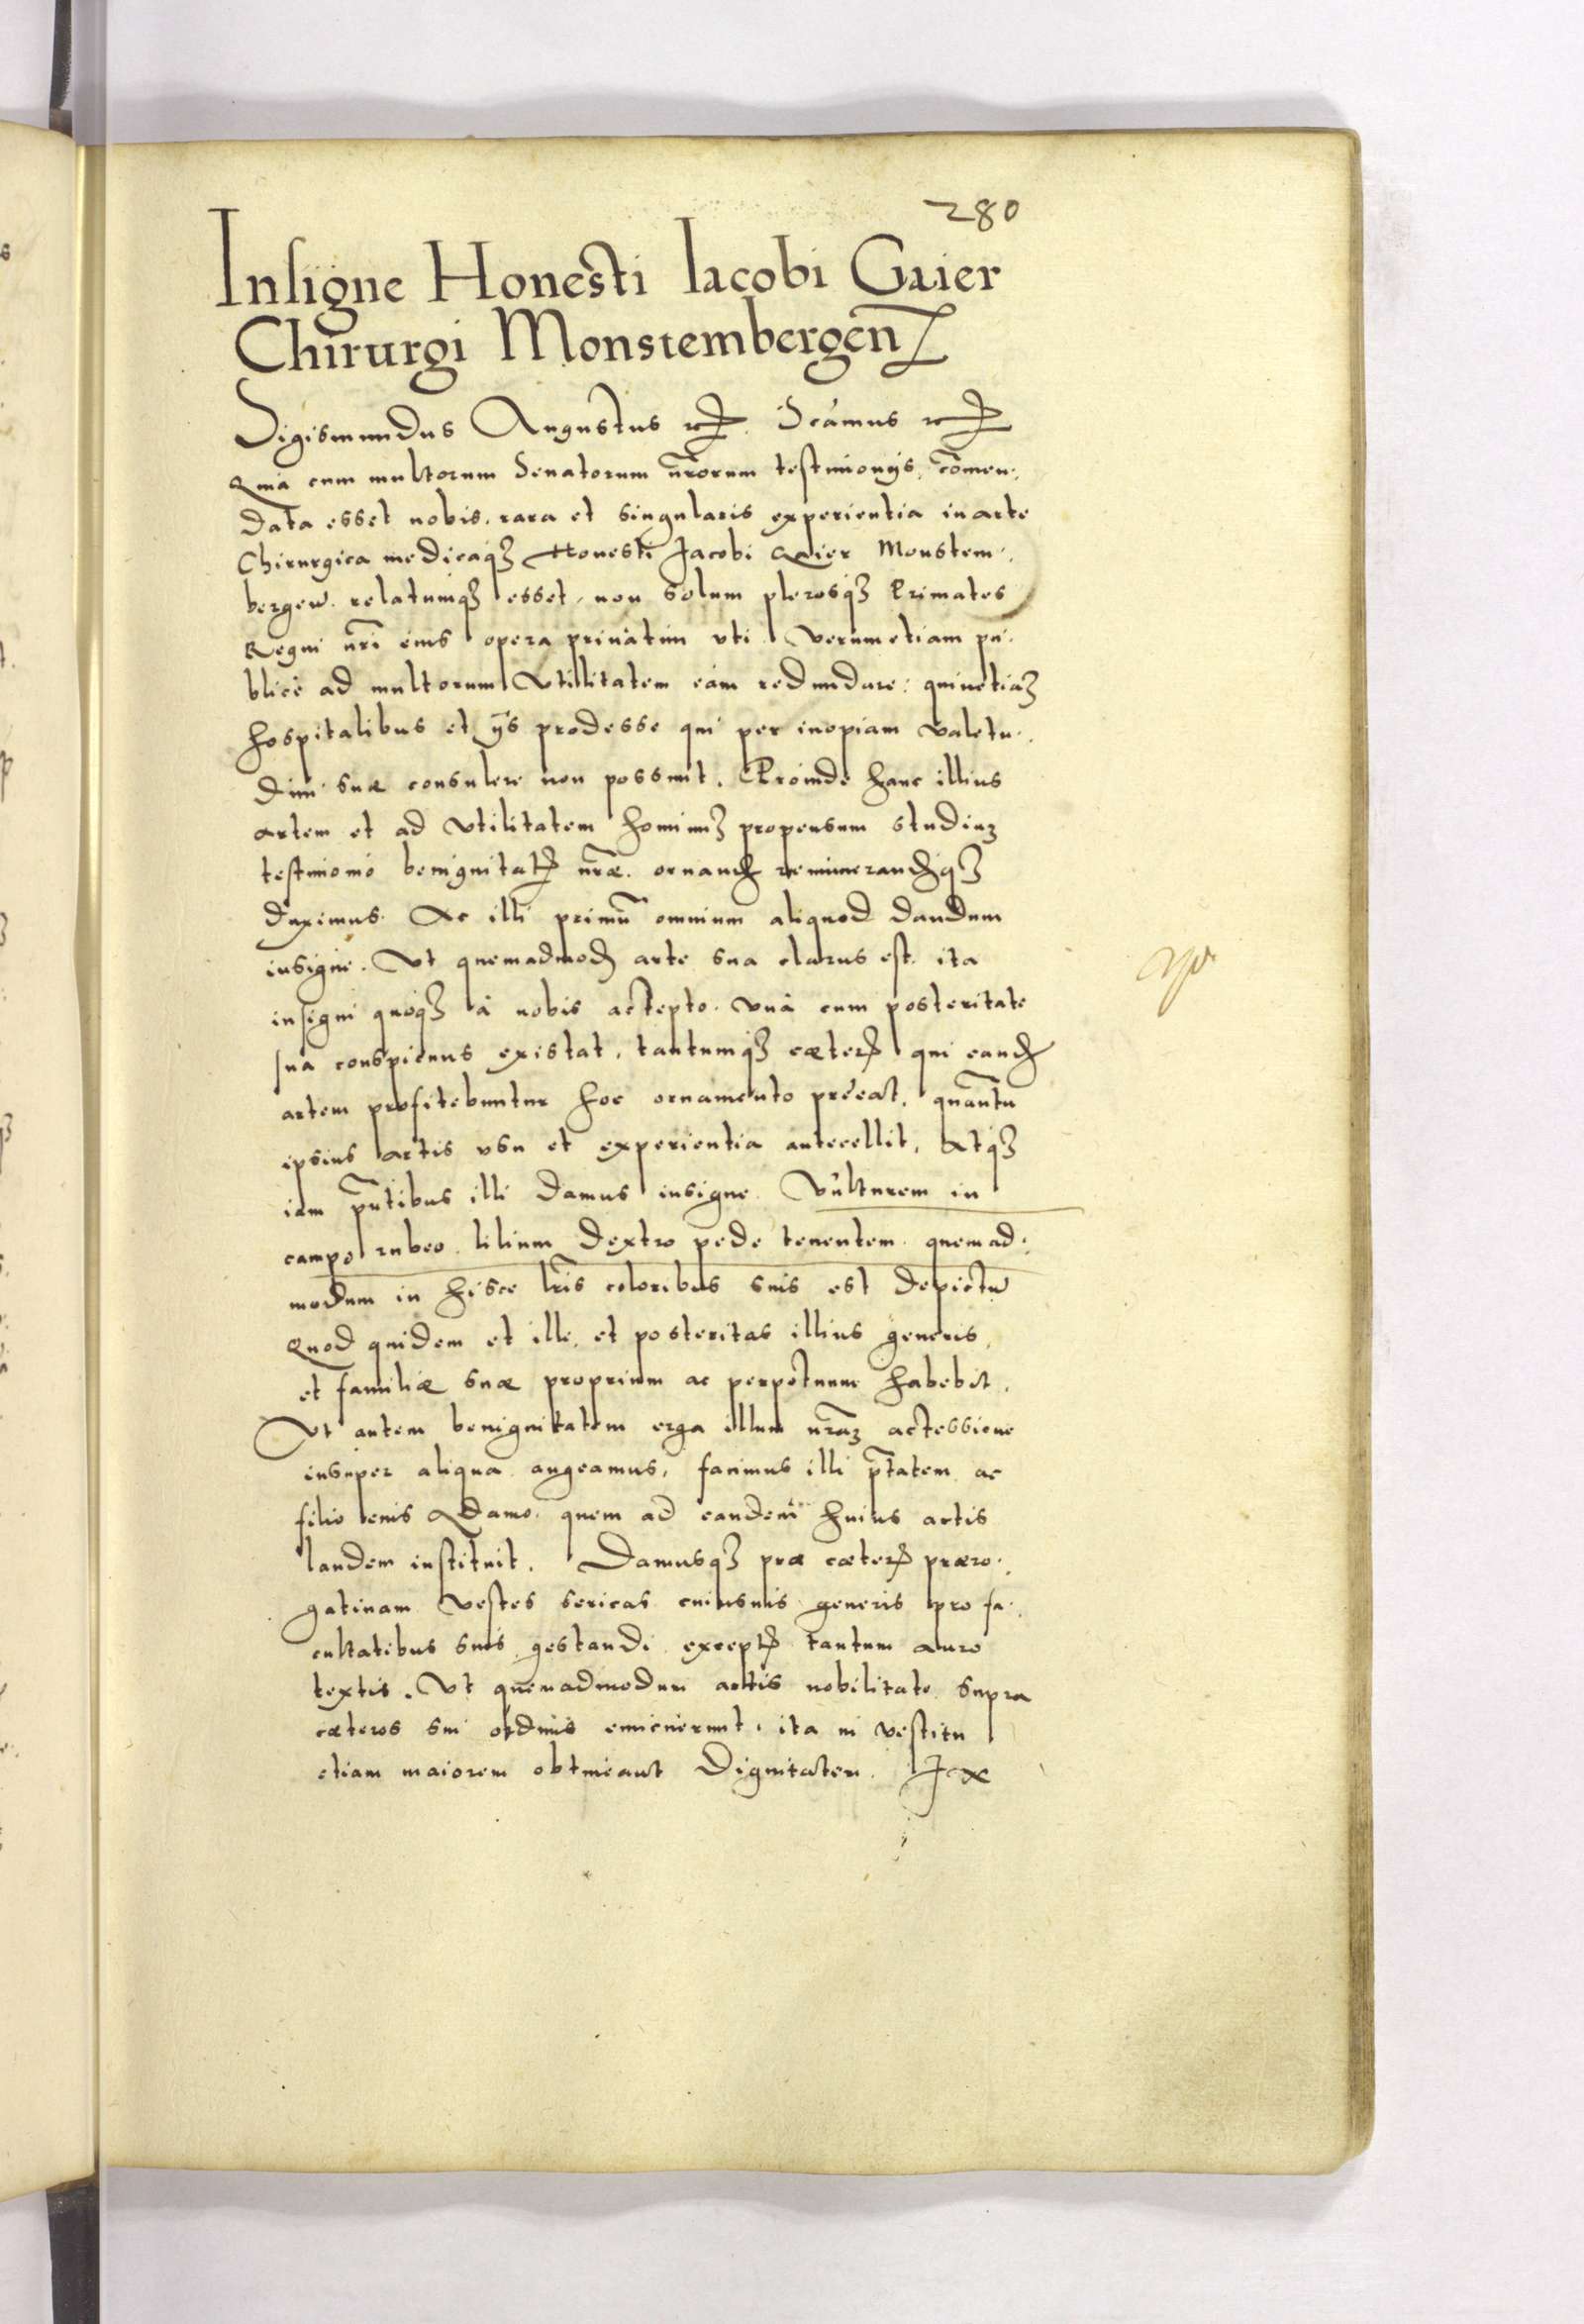 280
Insigne Honesti Iacobi Gaier
Chirurgi Monstembergen̄
Sigismundus Augustus etc. Scamus etc.
Quia cum multorum Senatorum nr̄orum testimonijs, cōmen:
data esset nobis, rara et singularis experientia in arte
Chirurgica medicaq3 Honesti Jacobi Gaier Monstem:
bergen̄. relatumq3 esset, non solum plerosq3 Primates
Regni nr̄i eius opera priuatim vti. verumetiam pu:
blicè ad multorum Vtillitatem eam redundare: quinetia3
hospitalibus et ijs prodesse qui per inopiam valetu:
dini suæ consulere non possunt. Proinde hanc illius
artem et ad vtilitatem hominu3 propensum studiu3
testimonio benignitatis nr̄æ. ornand remunerandq3
duximus. Ac illi primū omnium aliquod dandum
insigne. Vt quemadmod arte sua clarus est. ita
insigni quoq3 à nobis accepto. vnà cum posteritate
sua conspicuus existat, tantumq3 cæteris qui eand
artem profitebuntur hoc ornamento præeat. quantū
ipsius artis vsu et experientia antecellit, Atq3
iam pn̄tibus illi damus insigne. Vulturem in
campo rubeo. lilium dextro pede tenentem. quemad:
modum in hisce lr̄is coloribus suis est depictū
Quod quidem et ille, et posteritas illius generis,
et familiæ suæ proprium ac perpetuum habebit.
Vt autem benignitatem erga illum nr̄a3 accessione
insuper aliqua augeamus, facimus illi p̄tatem ac
filio eius Adamo. quem ad eandem huius artis
laudem instituit. Damusq3 præ cæteris præro:
gatiuam vestes sericas cuiusuis generis pro fa:
cultatibus suis gestandi exceptis tantum auro
textis. Vt quemadmodum artis nobilitate supra
cæteros sui ordinis emicuerunt, ita in vestitu
etiam maiorem obtineant Dignitatem.